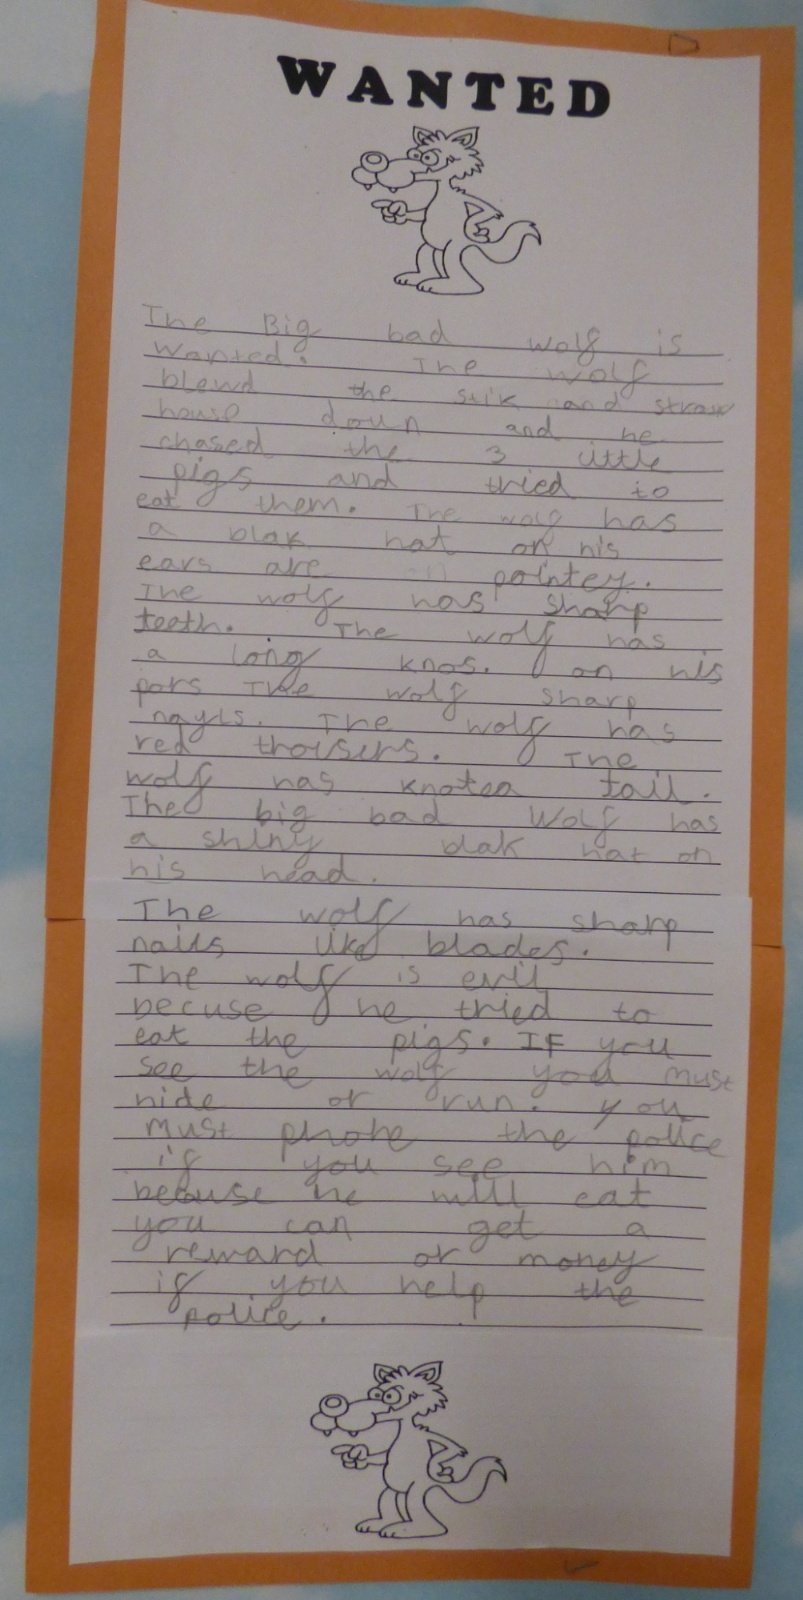 WANTED
The Big bad wolf is
wanted. The wolf
blewd the stik and straw
house doun and he
chased the 3 little
pigs and tried to
eat them. The wolf has
a blak hat on his
ears are pointey.
The wolf has sharp
teeth. The wolf has
a long knos. on his
pors The wolf sharp
nayls. The wolf has
red thousers. The
wolf has knotea tail.
The big bad Wolf has
a shiny blak hat on
his head.
The wolf has sharp
nails like blades.
The wolf is evil
becuse he tried to
eat the pigs. IF you
see the wolf you must
hide or run. you
must phone the police
if you see him
becuse he will eat
you can get a
reward or money
if you help the
police.